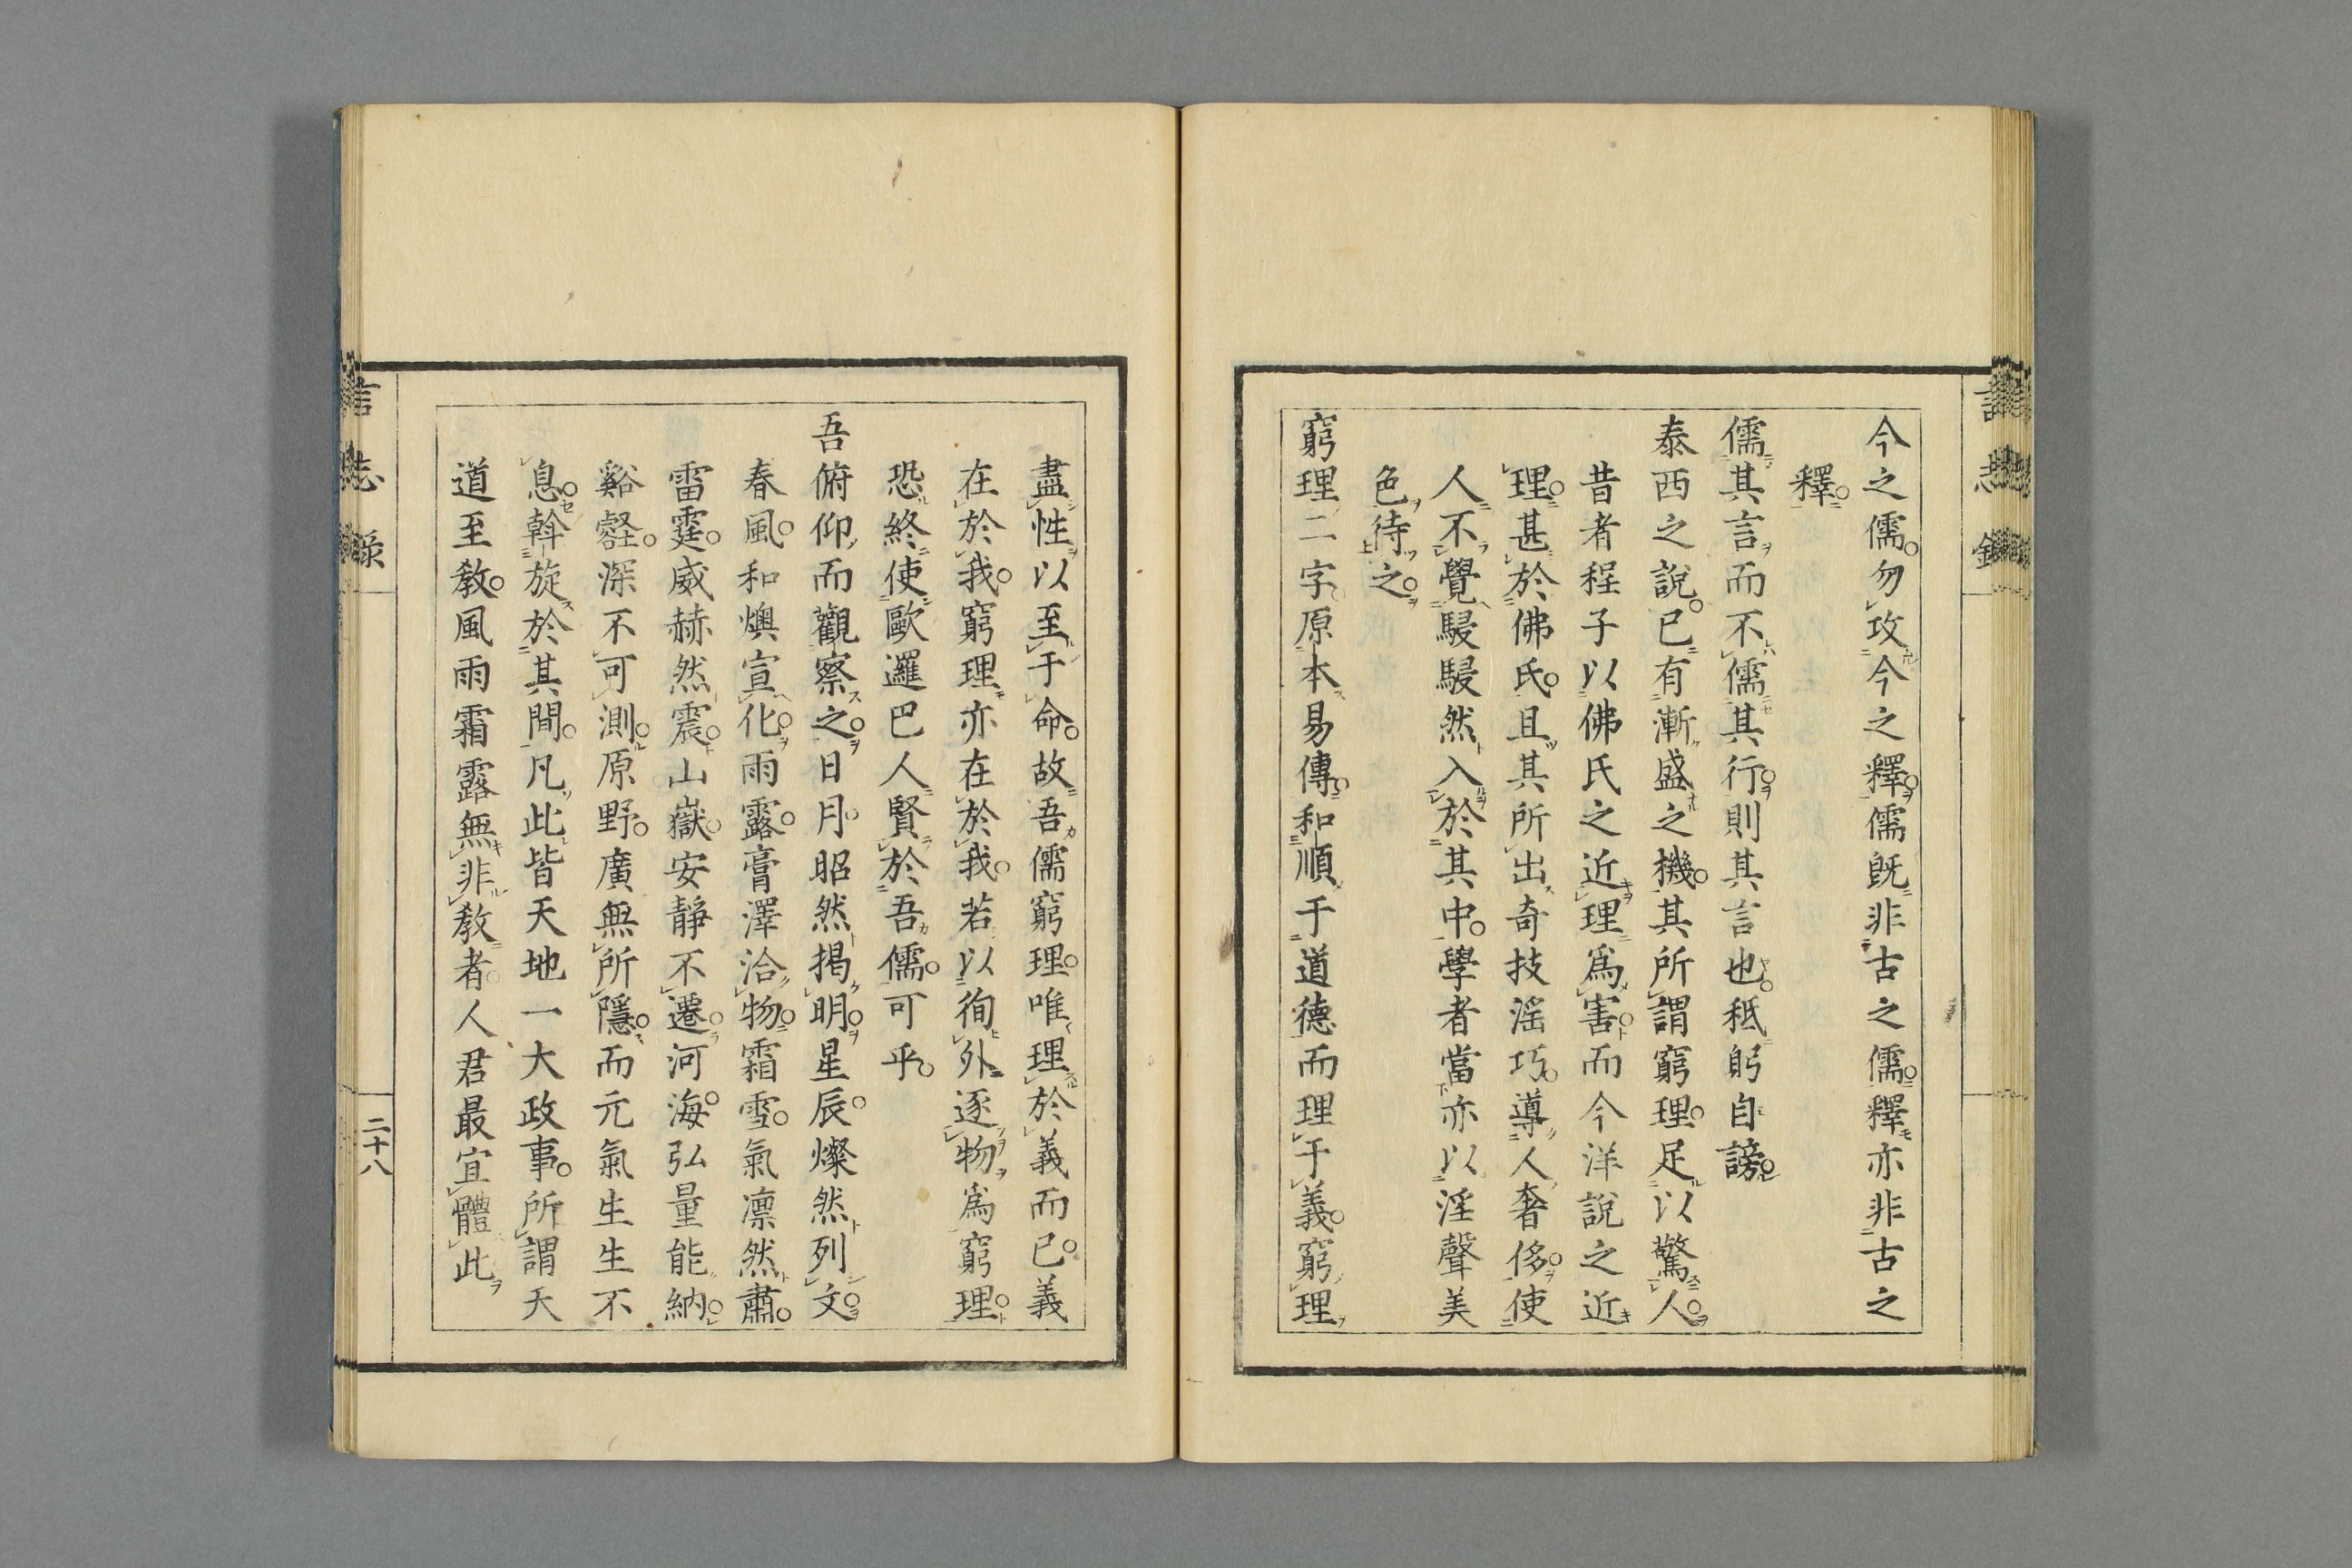 今之儒。勿攻今之釋。儒既非古之儒。釋亦非古之
釋。
儒其言而不儒其行。則其言也。秪躬自謗。
泰西之說。已有漸盛之機。其所謂窮理。足以驚人。
昔者程子以佛氏之近理爲害。而今洋說之近
理。甚於佛氏。且其所出奇技滛巧。導人奢侈。使
人不覺駸駸然入於其中。學者當亦以淫聲美
色待之。
窮理二字。原本易傳。和順于道德而理于義。窮理
盡性以至于命。故吾儒窮理。唯理於義而已。義
在於我。窮理亦在於我。若以徇外逐物爲窮理。
恐終使歐邏巴人賢於吾儒。可乎。
吾俯仰而觀察之。日月。昭然揭明。星辰。燦然列文。
春風。和燠宣化。雨露。膏澤洽物。霜雪。氣凛然肅。
雷霆。威赫然震。山嶽。安靜不遷。河海。弘量能納。
谿壑。深不可測。原野。廣無所隱。而元氣生生不
息。斡旋於其間。凡此皆天地一大政事。所謂天
道至敎。風雨霜露無非敎者。人君最宜體此
言志錄
二十八